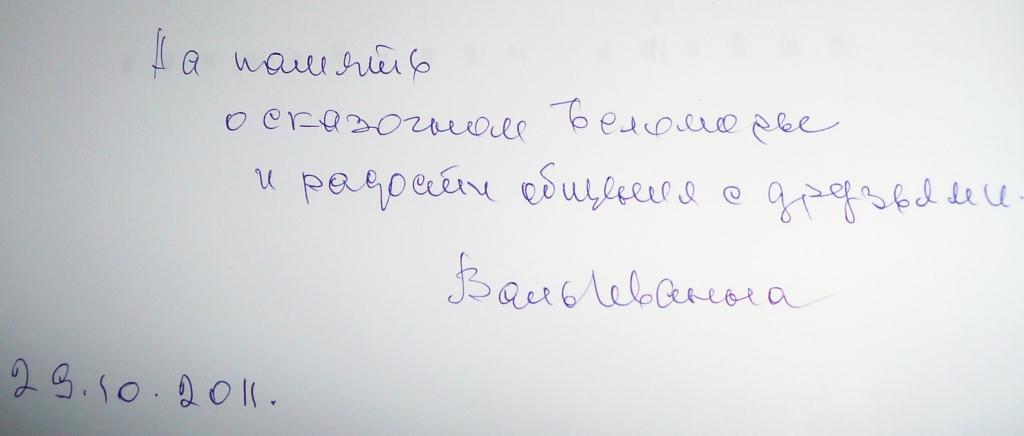 На память
о сказочном Беломорье
и радости общения с друзьями.
ВальИванна
29.10.2011.